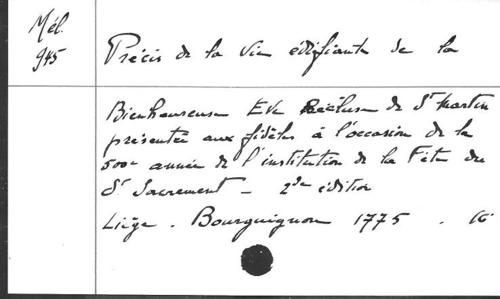 Mél.
945
Précis de la vie édifiante de la
Bienheureuse Eve Recluse de St Martin
présentée aux fidèles à l'occasion de la
500e année de l'institution de la Fête du
St Sacrement - 2de édition
Liège. Bourguignon 1775. 16